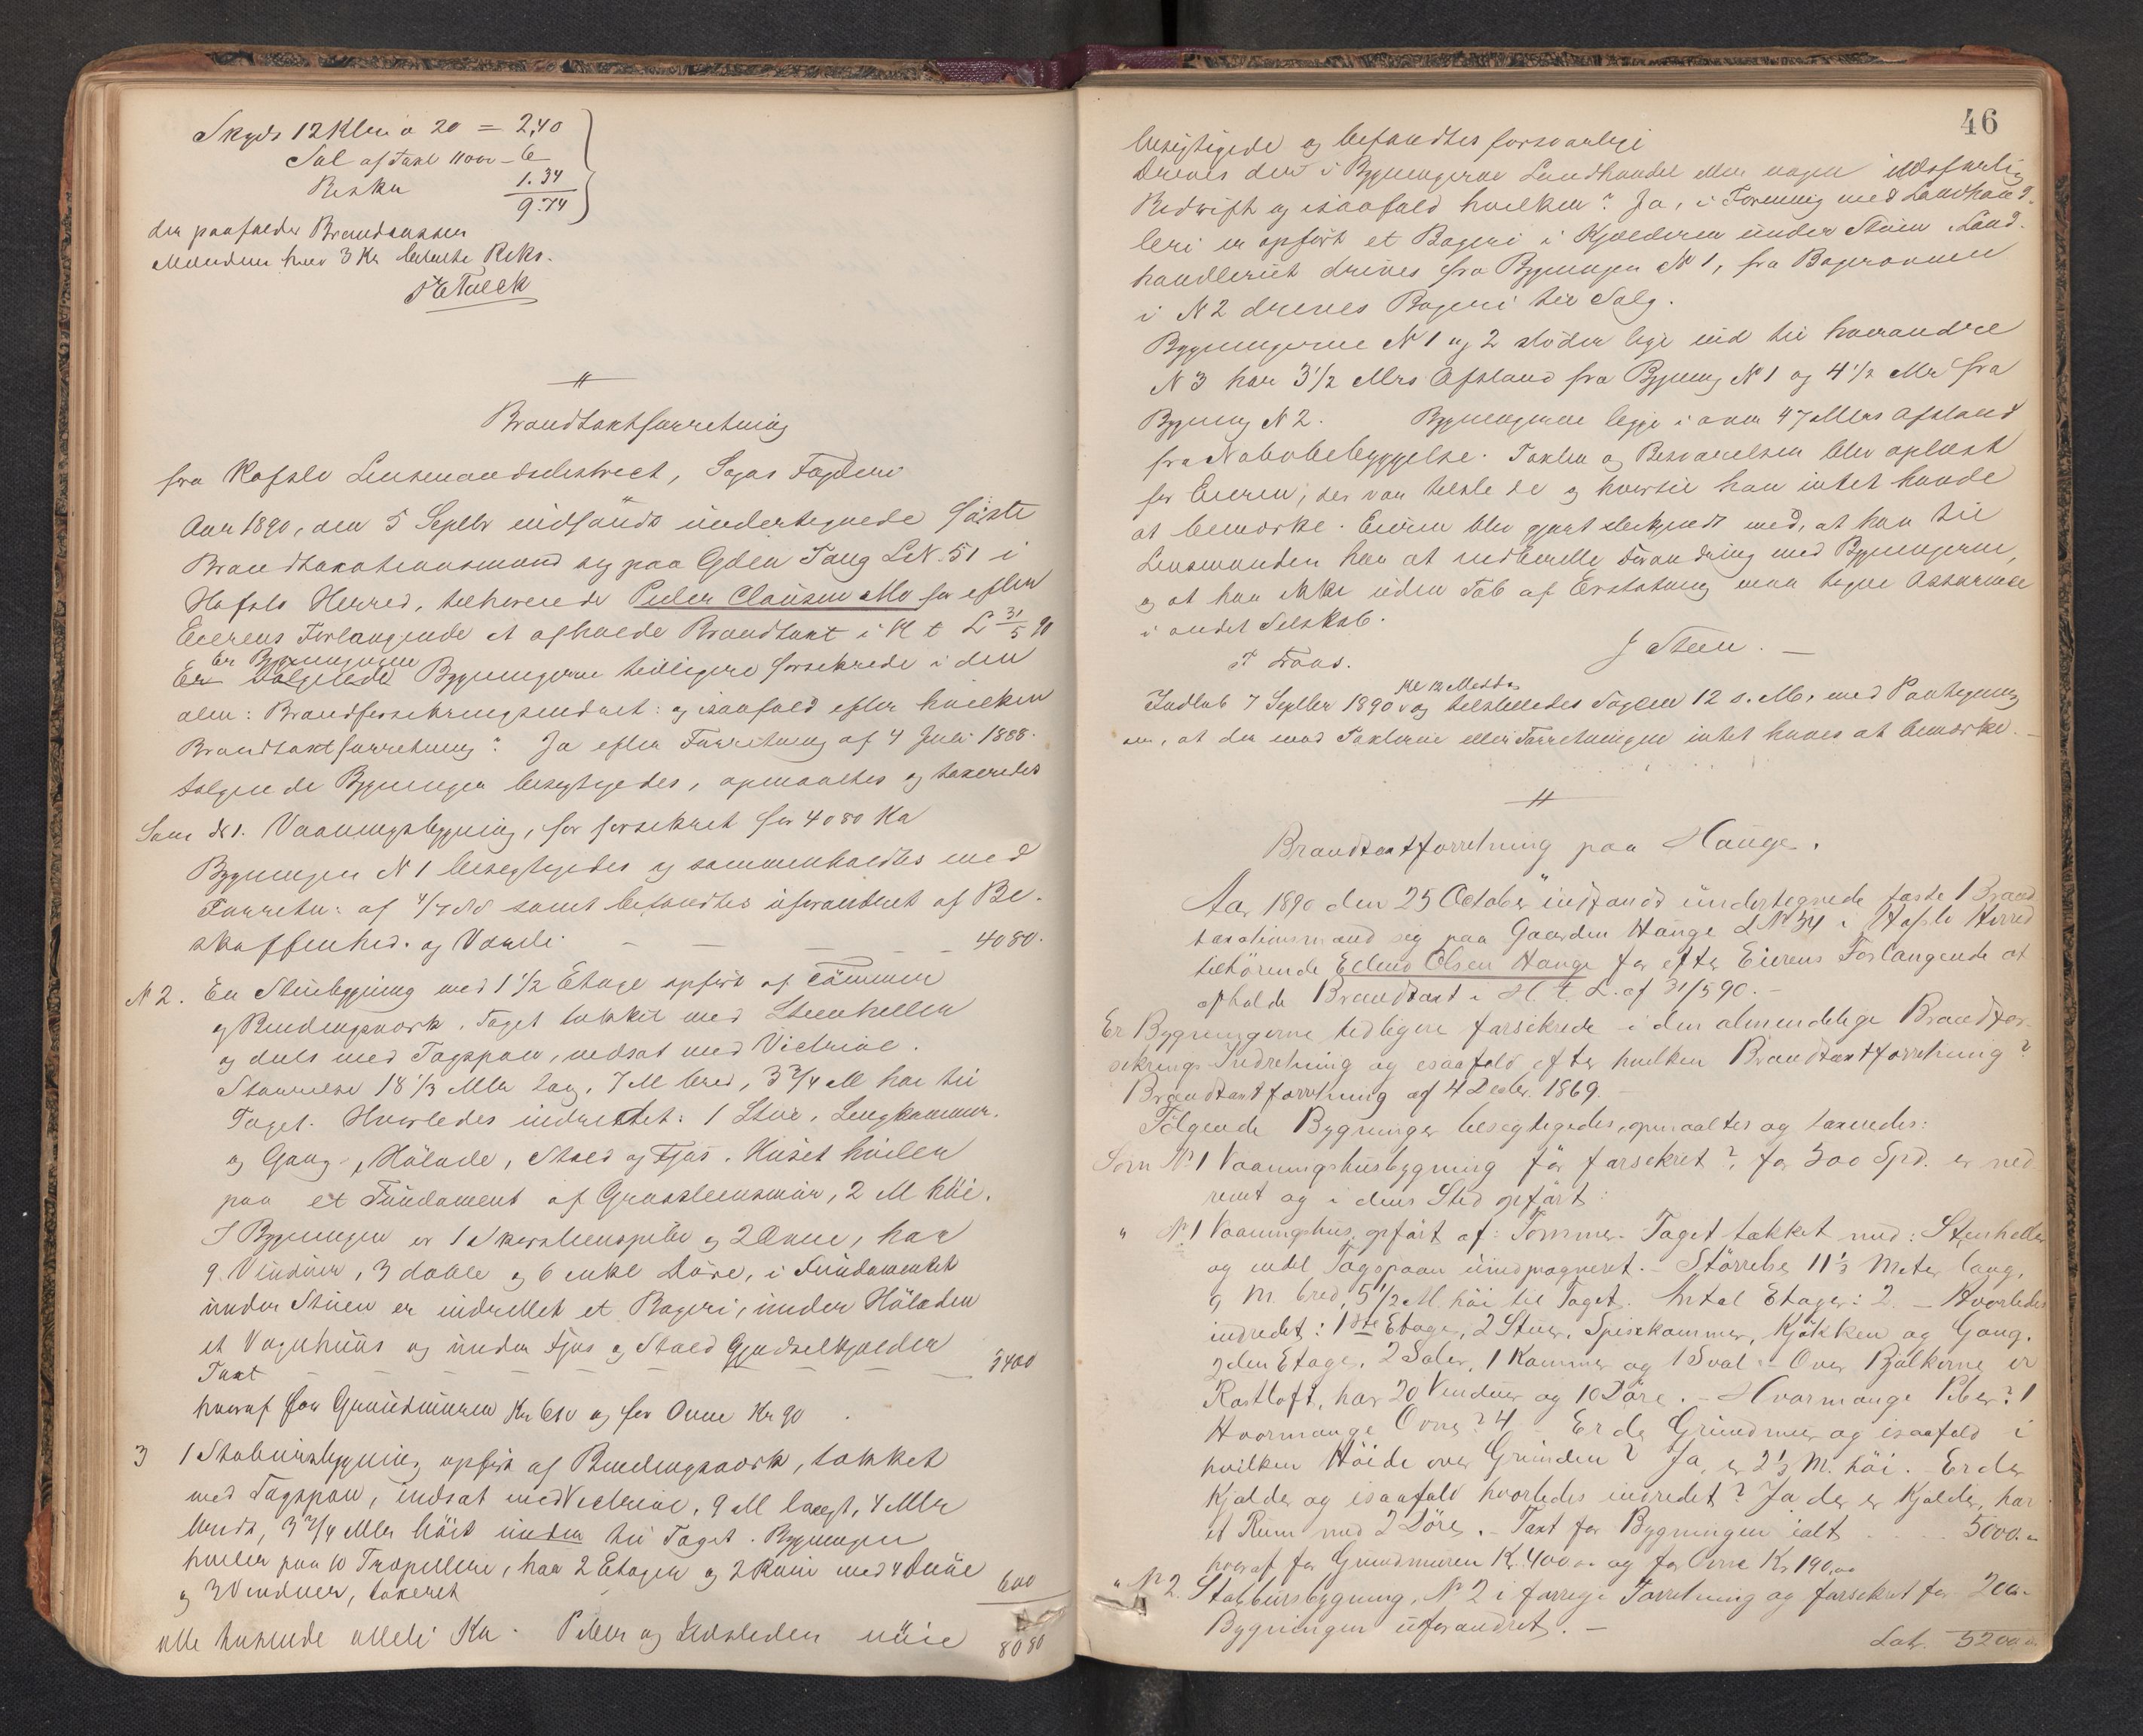 Skyds 12 Klm a 20 = 2,40
Sal af Taxt 11000 - 6
Reska 1.34
9.74
der paafalder Brandkassen
Manden har 3 Kr betalte Reks.
Brandtaxtforretning
fra Hafslo Lensmandsdistrect, Sogns Fogderi
Aar 1890, den 5 Septbr indfandt undertegnede faste
Brandtaxationsmænd sig paa Gden Tang LN. 51 i
Hafslo Herred, tilhørende Peder Clausen Mo for efter
Eierens Forlangende at afholde Brandtaxt i H t L 31/5 90
Er Bygningerne
Er Bygningerne tidligere forsikrede i den
alm: Brandforsikringsindret: og isaafald efter hvilken
Brandtaxtforretning? Ja efter Forretning af 4 Juli 1888.
følgende Bygninger besigtigedes, opmaaltes og taxeredes
Som No 1. Vaaningsbygning, før forsikret for 4080 Kr
Bygningen N 1 besigtigedes og sammenholdtes med
Forretn: af 4/7 88 samt befandtes uforandret af Be-
skaffenhed og Værdi - - - - 4080.
N 2. En Stuebygning med 1 1/2 Etage opført af Tømmer
og Bindingsværk. Taget tækket med Steenheller
og dels med Tagspaan, indsat med Victriol.
Størrelse 18 1/3 Mtr lag, 7 M bred, 3 3/4 M høi til
Taget. Hvorledes indrettet: 1 Stue, Sengkammer
og Gang, Hølade, Stald og Fjøs. Huset hviler
paa et Fundament af Graasteensmur, 2 M høi.
I Bygningen er 1 Skorsteenspibe og 2 Ovne, har
9 Vinduer, 3 doble og 6 enkl Døre, i Fundamentet
under Stuen er indrettet et Bageri, under Høladen
et Vognhuus og under Fjøs og Stald Gjødselkjælder
Taxt - - - - - 3400
hvoraf for Grundmuren Kr 610 og for Ovne Kr 90
3 1 Stabursbygning opført af Bindingsværk, tækket
med Tagspaan, indsat med Victriol, 9 M langt, 4 Mtr
bredt, 3 3/4 Mtr høit under til Taget. Bygningen
hviler paa 10 Træpillere, har 2 Etager og 2 Rum med 4 Døre
og 3 Vinduer, taxeret 600
alle Husende alleti Kr. Piber og Ildsteder uiie 8080
46
besigtigede og befandtes forsvarlige
Drives der i Bygningerne Landhandel eller nogen ildsfarlig
Bedrift og isaafald hvilken? Ja, i Forening med Landhand-
leri er opført et Bageri i Kjælderen under Stuen. Land-
handleriet drives fra Bygningen N 1, fra Bagerovnen
i N 2 drives Bageri til Salg.
Bygningerne N 1 og 2 støder lige ind til hverandre
N 3 har 3 1/2 Mtrs Afstand fra Bygning N 1 og 4 1/2 Mtr fra
Bygning N 2. Bygningerne ligge i over 47 Mtrs afstand
fra Nabobebyggelse. Taxten og Besvarelsen blev oplæst
for Eieren, der var tilstede og hvortil han intet havde
at bemærke. Eieren blev gjort bekjendt med, at han til
Lensmanden har at indberette Forandring med Bygningerne,
og at han ikke uden Tab af Erstatning maa tegne Assurance
i andet Selskab.
J Steen.
Indlevb 7 Septbr 1890 og tilstilledes Fogden 12 s. M. med Paategning
om, at der mod Taxterne eller Forretningen intet haves at bemærke.
Brandtaxtforretning paa Hauge.
Aar 1890 den 25 October indfandt undertegnede faste Brand
taxationsmænd sig paa Gaarden Hauge L No 34 i Hafslo Herred
tilhørende Erland Olsen Hauge for efter Eierens Forlangende at
afholde Brandtaxt i H. t. L. af 31/5 90. -
Er Bygningerne tidligere forsikrede i den almindelige Brandfor-
sikrings Indretning og isaafald efter hvilken Brandtaxtforretning?
Brandtaxtforretning af 4 Decbr. 1869. -
Følgende Bygninger besigtigedes, opmaaltes og taxeredes:
Som No 1 Vaaningshusbygning før forsikret? for 500 Spd. er ned-
revet og i dens Sted opført:
" No 1 Vaaningshus opført af: Tømmer. Taget tækket med: Steenheller
og endel Tagspaan uimprægneret. - Størrelse 11 1/3 Meter lang,
9 M. bred, 5 1/2 M. høi til Taget. Antal Etager: 2. - Hvorledes
indredet: 1ste Etage, 2 Stuer, Spisekammer, Kjøkken og Gang.
2den Etage, 2 Saler, 1 Kammer og 1 Sval. - Over Bjælkerne er
Røstloft, har 20 Vinduer og 10 Døre. - Hvormange Piber? 1
Hvormange Ovne? 4 - Er der Grundmur og isaafald i
hvilken Høide over Grunden? Ja, er 2 1/3 M. høi. - Er der
Kjælder og isaafald hvorledes indredet? Ja der er Kjælder, har
et Rum med 2 Døre. - Taxt for Bygningen ialt - - - 5000.-
hvoraf for Grundmuren Kr. 400.00 og for Ovne Kr 190,00
" No 2. Stabbursbygning, No 2 i forrige Forretning og forsikret for 200.-
Bygningen uforandret. -
Lat. 5200.-